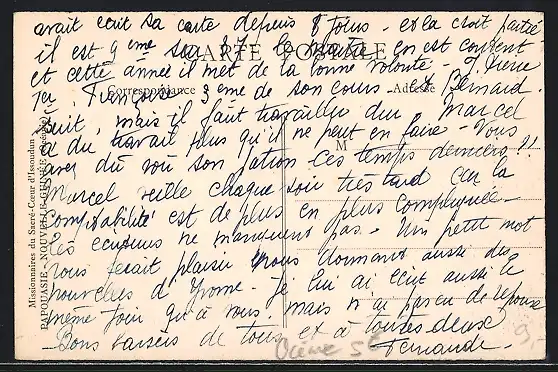 avait écrit sa carte depuis 8 jours - et la croit partie
il est 9eme sur 37 - le maitre en est content
et cette année il met de la bonne volonté -
CARTE POSTALE
1er, Françoise 3eme de son cours et Bernard
Correspondance
Adresse
suit, mais il faut travailler dur Marcel
a du travail plus qu'il ne peut en faire - Vous
M
avez dû voir son ces temps derniers !!
Marcel veille chaque soir très tard car la
comptabilité est de plus en plus compliquée -
Les ennuis ne manquent pas - Un petit mot
nous ferait plaisir nous donnant aussi des
nouvelles d'Yvonne - Je lui ai écrit aussi le
même jour qu'à vous mais n'ai pas eu de réponse
Bons baisers de tous et à toutes deux
Fernande -
Missionnaires du Sacré-Cœur d'Issoudun
PAPOUASIE - NOUVELLE-GUINÉE